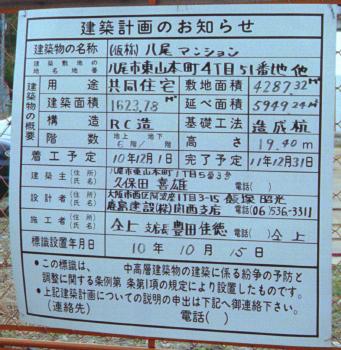 建築計画のお知らせ
建築物の名称 (仮称) 八尾マンション
建築敷地の地名地番 八尾市東山本町4丁目51番地他
建築物の概要
用途 共同住宅 敷地面積 4287.32㎡
建築面積 1623.78㎡ 延べ面積 5949.24㎡
構造 RC造 基礎工法 造成杭
階数 地上 6階 地下 階 高さ 19.40m
着工予定 10年12月1日 完了予定 11年12月31日
建築主 (住所)(氏名) 八尾市東山本町1丁目5番3号
久保田 喜雄 電話( )
設計者 (住所)(氏名) 大阪市西区阿波座1丁目3-15
鹿島建設(株)関西支店 電話(06)536-3311
施工者 (住所)(氏名) 仝上 支店長 豊田佳徳 電話( ) 仝上
標識設置年月日 10年10月15日
●この標識は、 中高層建築物の建築に係る紛争の予防と
調整に関する条例第 条第1項の規定により設置したものです。
●上記建築計画についての説明の申出は下記へ御連絡下さい。
(連絡先) 電話( )